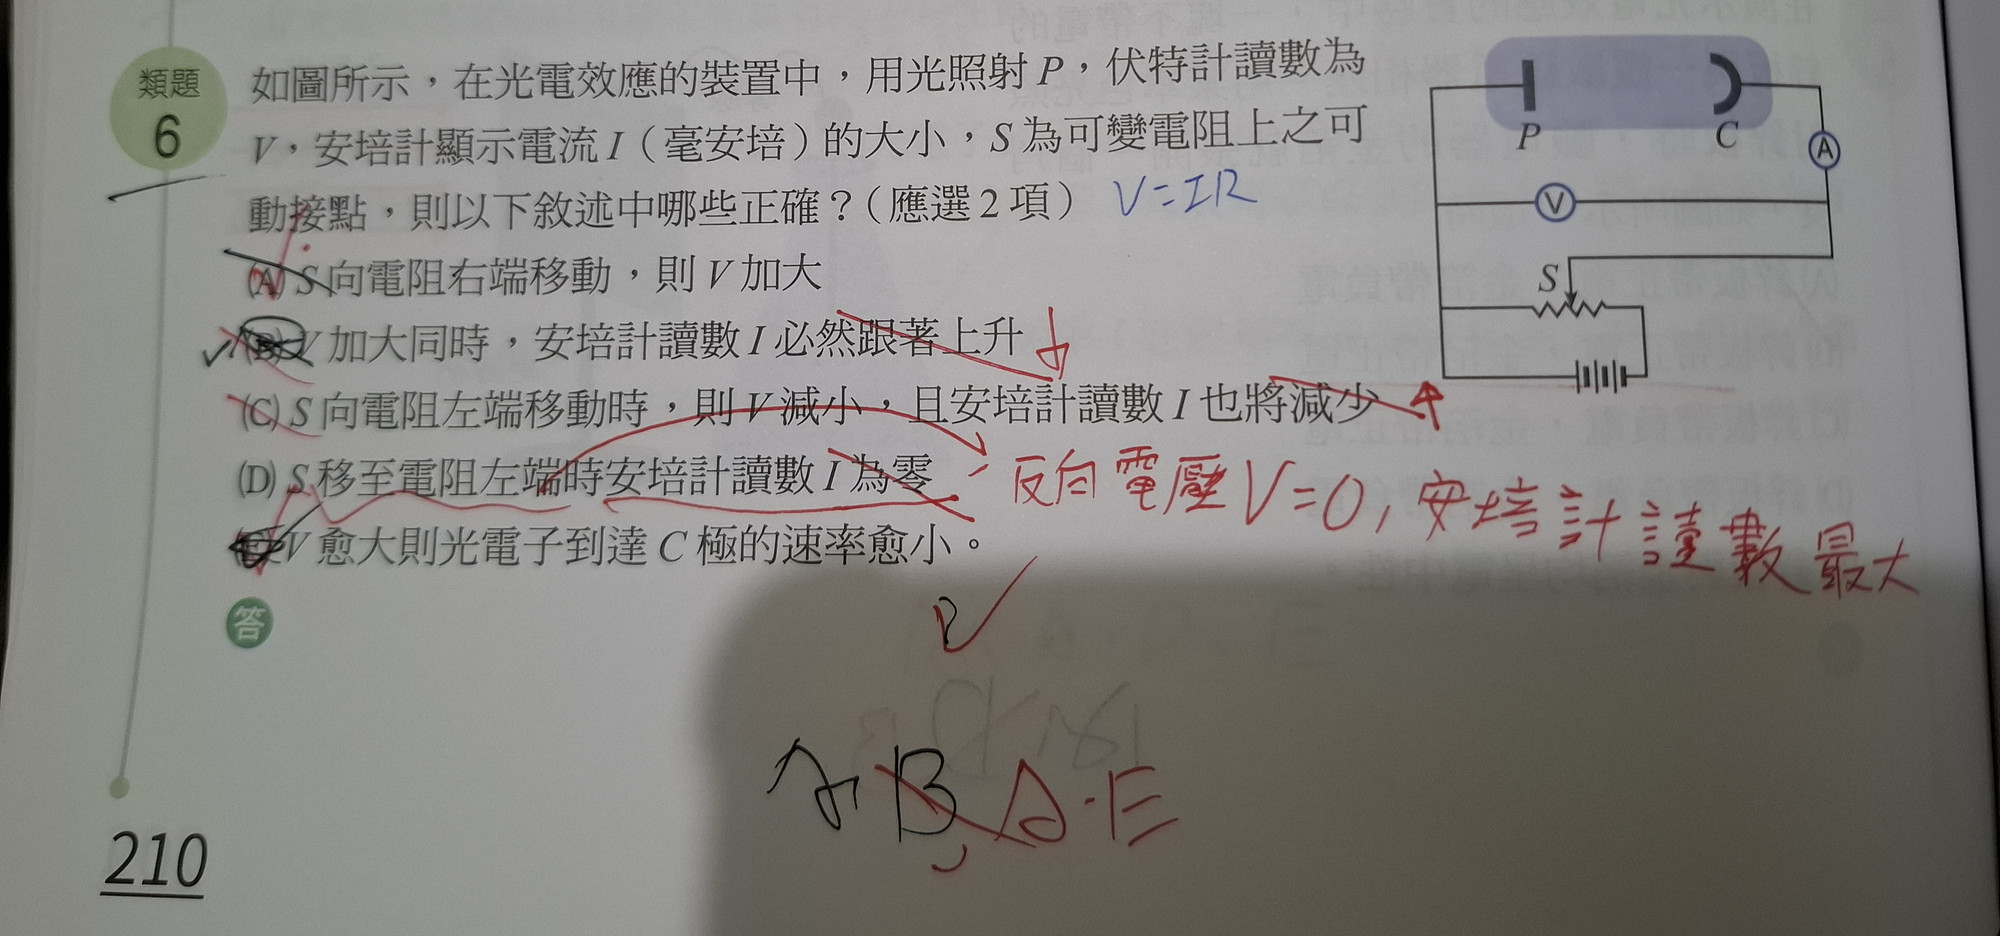 類題
6
如圖所示，在光電效應的裝置中，用光照射 P，伏特計讀數為
V，安培計顯示電流 I（毫安培）的大小，S 為可變電阻上之可
動接點，則以下敘述中哪些正確？（應選 2 項） V=IR
(A) S 向電阻右端移動，則 V 加大
(B) V 加大同時，安培計讀數 I 必然跟著上升
(C) S 向電阻左端移動時，則 V 減小，且安培計讀數 I 也將減少
(D) S 移至電阻左端時安培計讀數 I 為零
反向電壓V=0，安培計讀數最大
(E) V 愈大則光電子到達 C 極的速率愈小。
答
P
C
A
V
S
B A.E
210